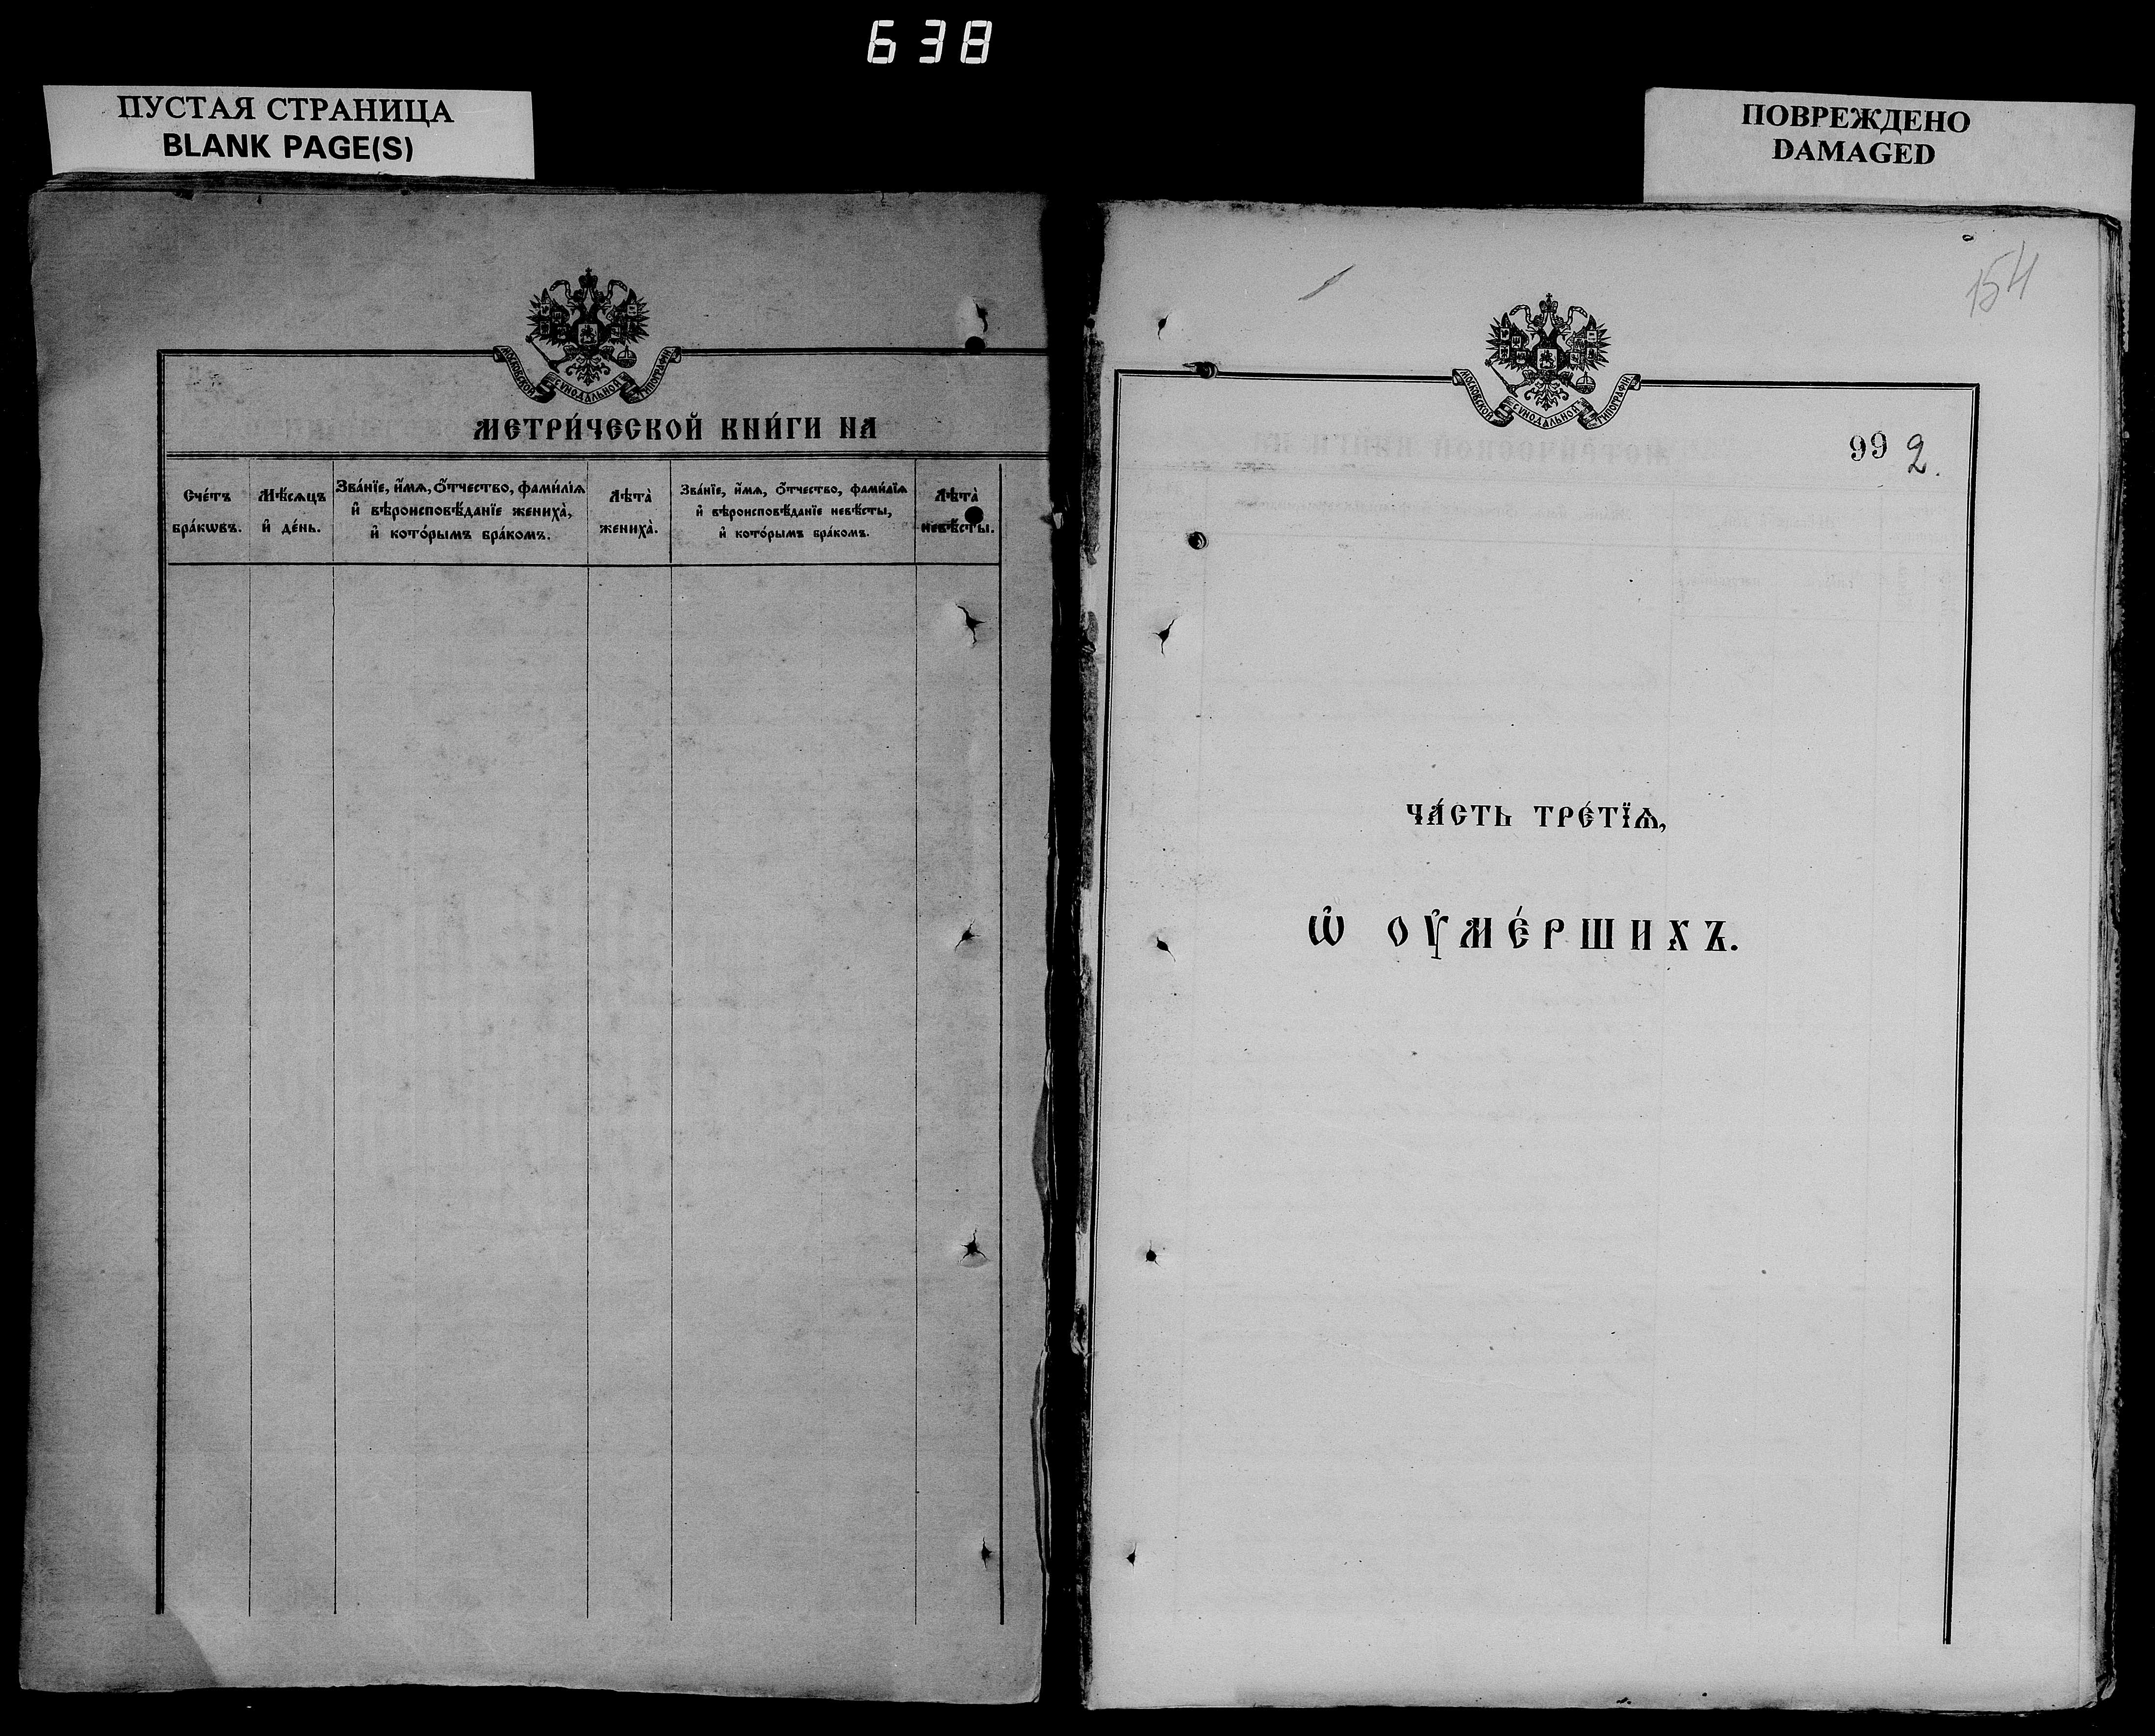 638
ПУСТАЯ СТРАНИЦА
BLANK PAGE(S)
МОСКОВСКОЙ СѴНОДАЛЬНОЙ ТИПОГРАФІИ
МЕТРИ́ЧЕСКОЙ КНИ́ГИ НА
Сче́тъ бра́кѡвъ.
Мѣ́сѧцъ и҆ де́нь.
Зва́нїе, и҆́мѧ, ѻ҆́тчество, фами́лїѧ
и҆ вѣроисповѣ́данїе жениха̀,
и҆ кото́рымъ бра́комъ.
Лѣта̀ жениха̀.
Зва́нїе, и҆́мѧ, ѻ҆́тчество, фами́лїѧ
и҆ вѣроисповѣ́данїе невѣ́сты,
и҆ кото́рымъ бра́комъ.
Лѣта̀ невѣ́сты.
ПОВРЕЖДЕНО
DAMAGED
154
МОСКОВСКОЙ СѴНОДАЛЬНОЙ ТИПОГРАФІИ
99 2.
ЧА́СТЬ ТРЕ́ТЇѦ,
Ѡ҆ ОУ҆МЕ́РШИХЪ.